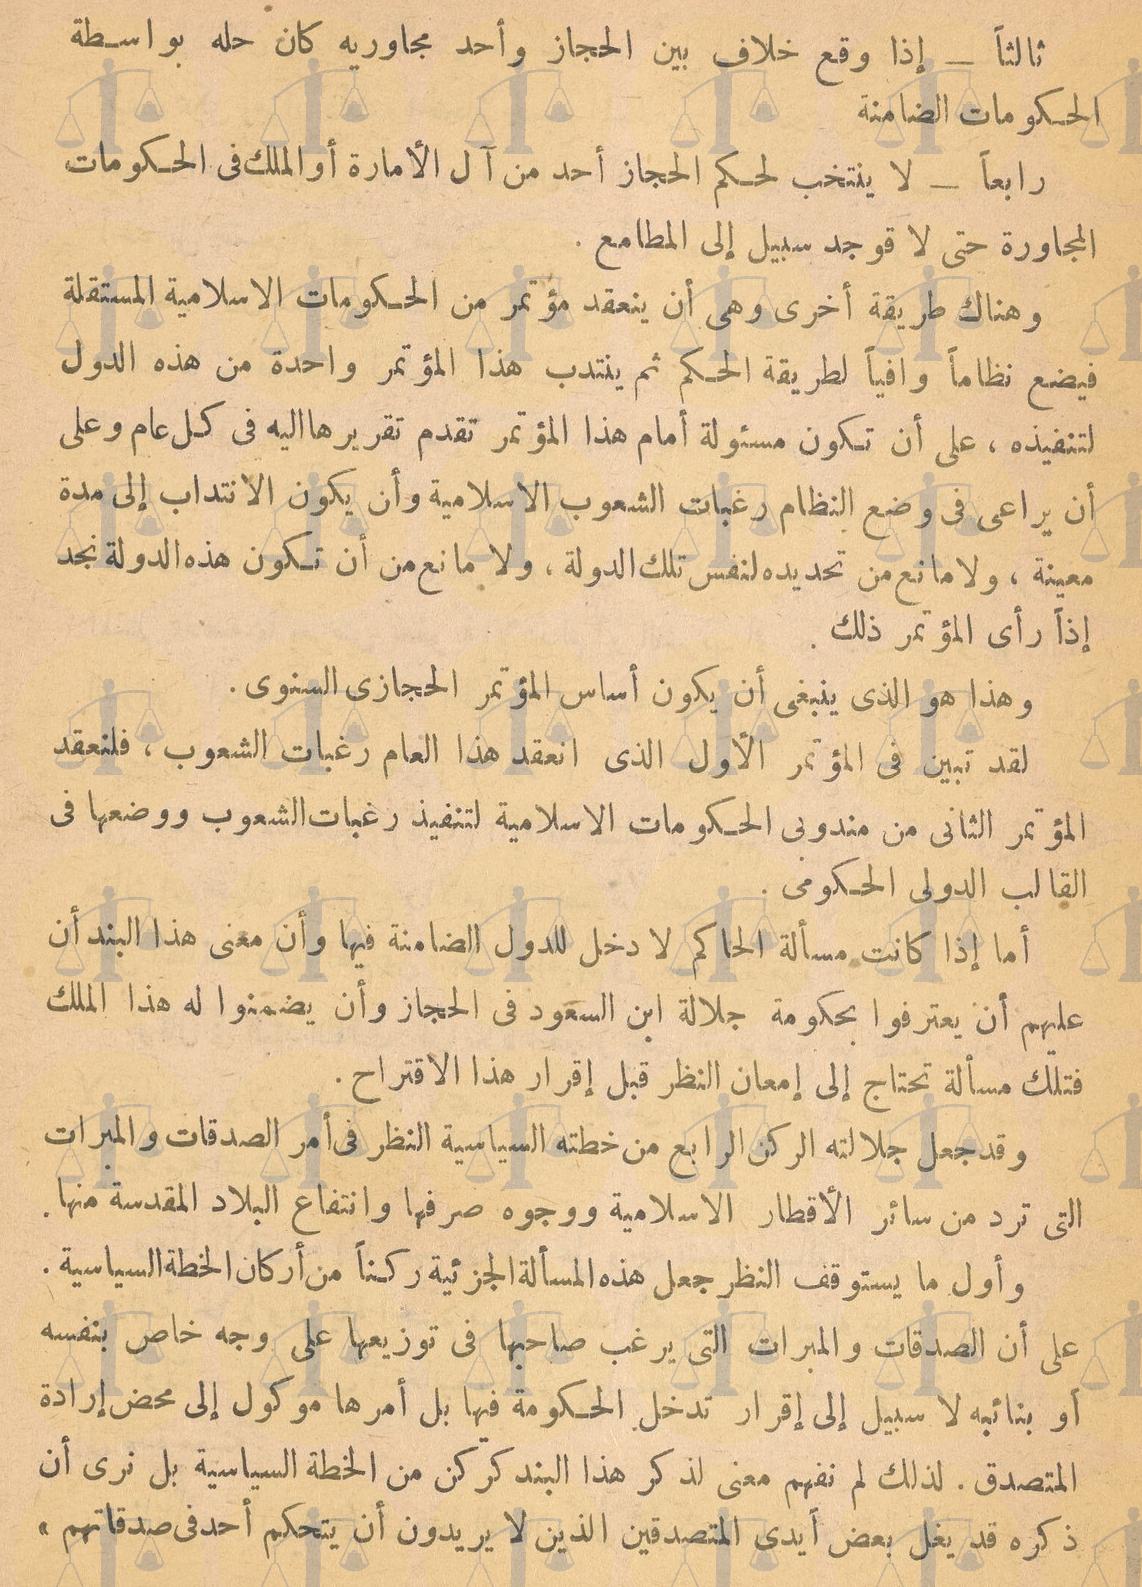 ثالثاً — إذا وقع خلاف بين الحجاز وأحد مجاوريه كان حله بواسطة
الحكومات الضامنة
رابعاً — لا ينتخب لحكم الحجاز أحد من آل الأمارة أو الملك فى الحكومات
المجاورة حتى لا قوجد سبيل إلى المطامع .
وهناك طريقة أخرى وهى أن ينعقد مؤتمر من الحكومات الاسلامية المستقلة
فيضع نظاماً وافياً لطريقة الحكم ثم ينتدب هذا المؤتمر واحدة من هذه الدول
لتنفيذه ، على أن تكون مسئولة أمام هذا المؤتمر تقدم تقريرها اليه فى كل عام وعلى
أن يراعى فى وضع النظام رغبات الشعوب الاسلامية وأن يكون الانتداب إلى مدة
معينة ، ولا مانع من تحديده لنفس تلك الدولة ، ولا مانع من أن تكون هذه الدولة نجد
إذاً رأى المؤتمر ذلك .
وهذا هو الذى ينبغى أن يكون أساس المؤتمر الحجازى السنوى .
لقد تبين فى المؤتمر الأول الذى انعقد هذا العام رغبات الشعوب ، فلنعقد
المؤتمر الثانى من مندوبى الحكومات الاسلامية لتنفيذ رغبات الشعوب ووضعها فى
القالب الدولى الحكومى .
أما إذا كانت مسألة الحاكم لا دخل للدول الضامنة فيها وأن معنى هذا البند أن
عليهم أن يعترفوا بحكومة جلالة ابن السعود فى الحجاز وأن يضمنوا له هذا الملك
فتلك مسألة تحتاج إلى إمعان النظر قبل إقرار هذا الاقتراح .
وقد جعل جلالته الركن الرابع من خطته السياسية النظر فى أمر الصدقات والمبرات
التى ترد من سائر الأقطار الاسلامية ووجوه صرفها وانتفاع البلاد المقدسة منها .
وأول ما يستوقف النظر جعل هذه المسألة الجزئية ركناً من أركان الخطة السياسية .
على أن الصدقات والمبرات التى يرغب صاحبها فى توزيعها على وجه خاص بنفسه
أو بنائبه لا سبيل إلى إقرار تدخل الحكومة فيها بل أمرها موكول إلى محض إرادة
المتصدق . لذلك لم نفهم معنى لذكر هذا البند كركن من الخطة السياسية بل نرى أن
ذكره قد يغل بعض أيدى المتصدقين الذين لا يريدون أن يتحكم أحد فى صدقاتهم »